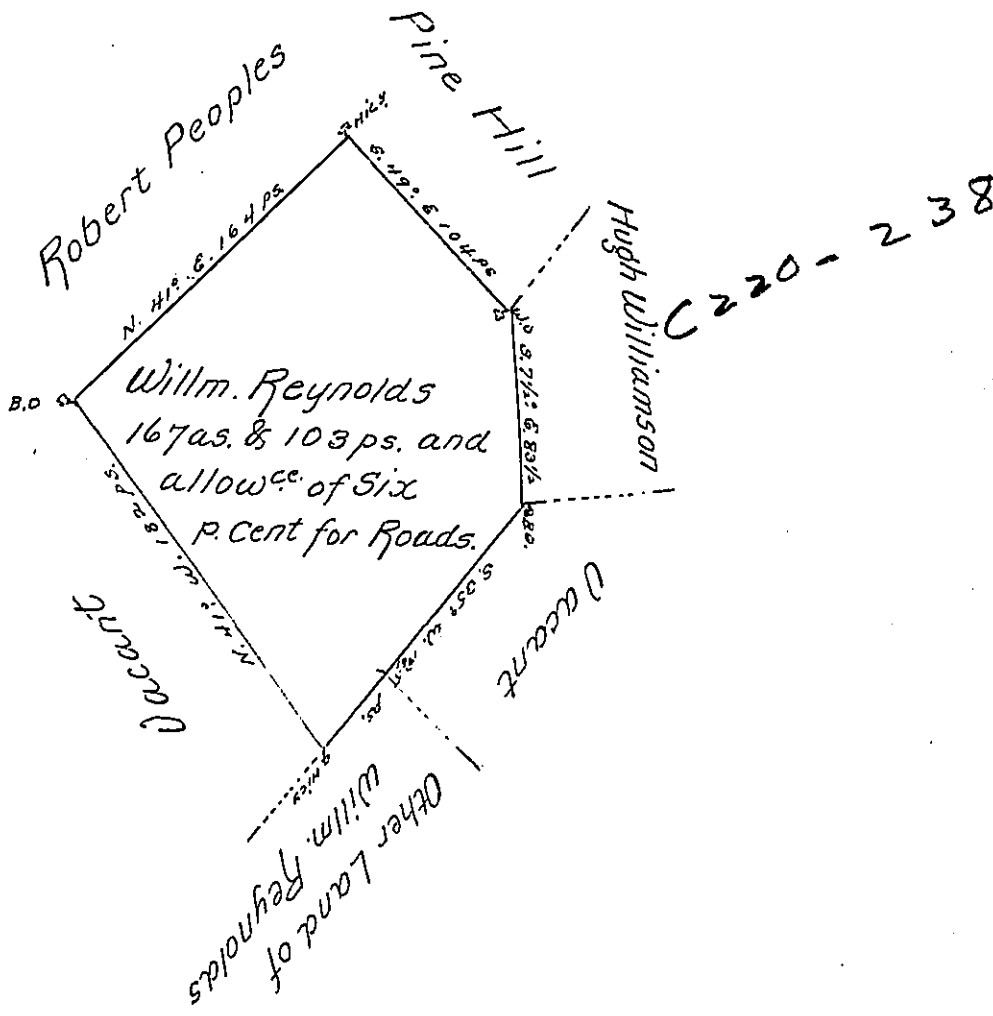 Robert Peoples
Pine Hill
Hugh Williamson
C220-238
HiCy.
N. 41°. E. 164 ps.
S. 49°. E 104 ps
W.O
S. 7½° E. 83½
B.O
Willm. Reynolds
167as. & 103 ps. and
allowce. of Six
p. Cent for Roads.
B.O.
S. 35° W.
ps.
N. 41° W. 182 ps.
HiCy
Vacant
Vacant
Other Land of
Willm. Reynolds